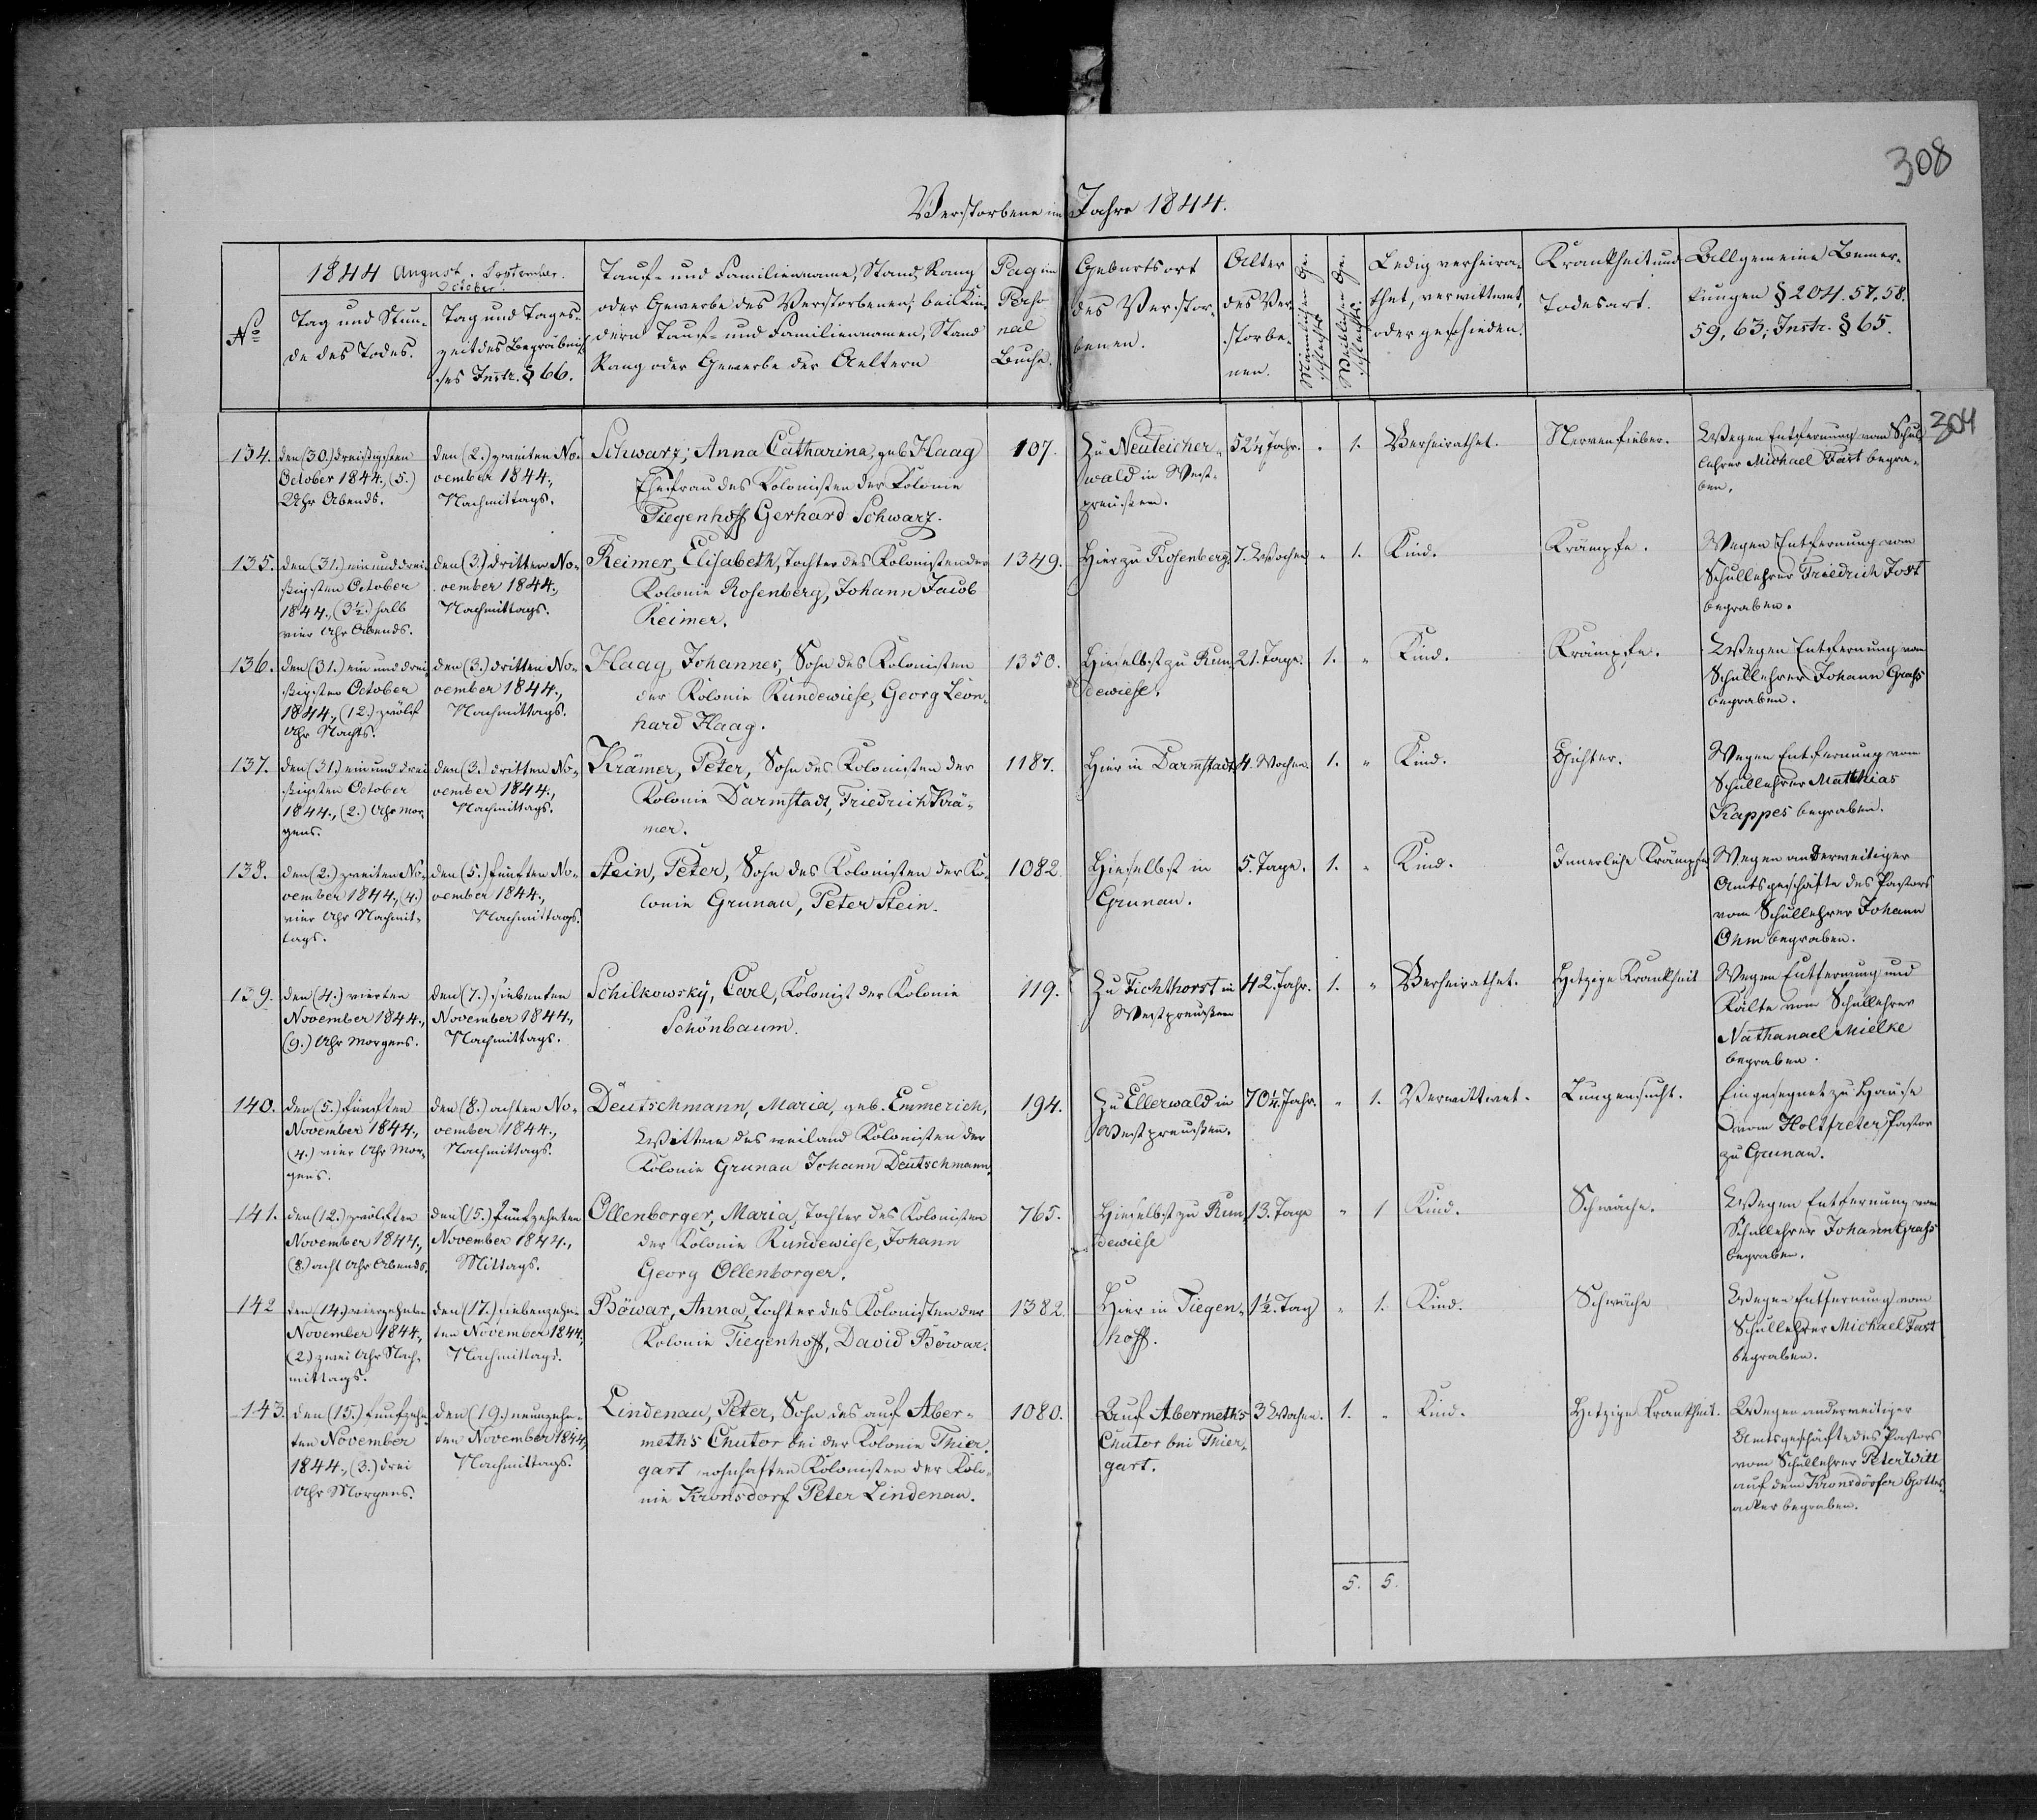 308
Verstorbene im Jahre 1844.
1844 August. September.
October.
No
Tag und Stun-
de des Todes.
Tag und Tages-
zeit des Begräbnis-
ses Instr. § 66.
Tauf- und Familienname, Stand, Rang
oder Gewerbe des Verstorbenen; bei Kin-
dern Tauf- und Familiennamen, Stand
Rang oder Gewerbe der Aeltern
Pag im
Perso
nal
Buche.
Geburtsort
des Verstor-
benen.
Alter
des Ver-
storbe-
nen.
Männlichen Ge-
schlechts
Weiblichen Ge-
schlechts.
Ledig verheira-
thet, verwittwet,
oder geschieden.
Krankheit und
Todesart.
Allgemeine Bemer-
kungen § 204. 57, 58.
59, 63; Instr. § 65.
304
134.
den (30.) dreißigsten
October 1844., (5.)
Uhr Abends.
den (2.) zweiten No-
vember 1844.,
Nachmittags.
Schwarz, Anna Catharina, geb. Haag
Ehefrau des Kolonisten der Kolonie
Tiegenhoff Gerhard Schwarz.
107.
Zu Neuteicher-
wald in West-
preußen.
52¼ Jahr. " 1. Verheirathet. Nervenfieber.
Wegen Entfernung vom Schul
lehrer Michael Fast begra-
ben.
135.
den (31.) ein und drei-
ßigsten October
1844., (3½.) halb
vier Uhr Abends.
den (3.) dritten No-
vember 1844.,
Nachmittags.
Reimer, Elisabeth, Tochter des Kolonisten der
Kolonie Rosenberg, Johann Jacob
Reimer.
1349.
Hier zu Rosenberg. 7. Wochen " 1. Kind. Krämpfe.
Wegen Entfernung vom
Schullehrer Friedrich Jost
begraben.
136.
den (31.) ein und drei-
ßigsten October
1844., (12.) zwölf
Uhr Nachts.
den (3.) dritten No-
vember 1844.,
Nachmittags.
Haag, Johannes, Sohn des Kolonisten
der Kolonie Rundewiese, Georg Leon-
hard Haag.
1350.
Hieselbst zu Run-
dewiese.
21. Tage. 1. " Kind. Krämpfe.
Wegen Entfernung vom
Schullehrer Johann Grahs
begraben.
137.
den (31.) ein und drei
ßigsten October
1844., (2.) Uhr Mor-
gens.
den (3.) dritten No-
vember 1844.,
Nachmittags.
Krämer, Peter, Sohn des Kolonisten der
Kolonie Darmstadt, Friedrich Krä-
mer.
1187.
Hier in Darmstadt 4. Wochen. 1. " Kind. Gichter.
Wegen Entfernung vom
Schullehrer Matthias
Kappes begraben.
138.
den (2.) zweiten No-
vember 1844., (4.)
vier Uhr Nachmit-
tags.
den (5.) fünften No-
vember 1844.,
Nachmittags.
Stein, Peter, Sohn des Kolonisten der Ko-
lonie Grunau, Peter Stein.
1082.
Hieselbst in
Grunau.
5. Tage. 1. " Kind. Innerliche Krämpfe
Wegen anderweitiger
Amtsgeschäfte des Pastors
vom Schullehrer Johann
Ohm begraben.
139.
den (4.) vierten
November 1844.,
(9.) Uhr Morgens.
den (7.) siebenten
November 1844.,
Nachmittags.
Schilkowsky, Carl, Kolonist der Kolonie
Schönbaum.
119.
Zu Fichthorst in
Westpreußen
42. Jahr. 1. " Verheirathet. Hitzige Krankheit
Wegen Entfernung und
Kälte vom Schullehrer
Nathanael Mielke
begraben.
140.
den (5.) fünften
November 1844.,
(4.) vier Uhr Mor-
gens.
den (8.) achten No-
vember 1844.,
Nachmittags.
Deutschmann, Maria, geb. Emmerich,
Wittwe des weiland Kolonisten der
Kolonie Grunau Johann Deutschmann.
194.
Zu Ellerwald in
Westpreußen.
70¼. Jahr. " 1. Verwittwet. Lungensucht.
Eingesegnet zu Hause
vom Holtfreter, Pastor
zu Grunau.
141.
den (12.) zwölften
November 1844.,
(8.) acht Uhr Abends.
den (15.) fünfzehnten
November 1844.,
Mittags.
Ollenborger, Maria, Tochter des Kolonisten
der Kolonie Rundewiese, Johann
Georg Ollenborger.
765.
Hieselbst zu Run-
dewiese
13. Tage " 1 Kind. Schwäche.
Wegen Entfernung vom
Schullehrer Johann Grahs
begraben.
142
den (14.) vierzehnten
November 1844.,
(2.) zwei Uhr Nach-
mittags.
den (17.) siebenzehn-
ten November 1844,
Nachmittags.
Böwar, Anna, Tochter des Kolonisten der
Kolonie Tiegenhoff, David Böwar.
1382.
Hier in Tiegen-
hoff.
1½. Tag " 1. Kind. Schwäche
Wegen Entfernung vom
Schullehrer Michael Fast
begraben.
143.
den (15.) fünfzehn-
ten November
1844., (3.) drei
Uhr Morgens.
den (19.) neunzehn-
ten November 1844,
Nachmittags.
Lindenau, Peter, Sohn des auf Aber-
meths Chutor bei der Kolonie Thier-
gart wohnhaften Kolonisten der Kolo-
nie Kronsdorf Peter Lindenau.
1080.
Auf Abermeths
Chutor bei Thier-
gart.
3 Wochen. 1. " Kind. Hitzige Krankheit.
Wegen anderweitiger
Amtsgeschäfte des Pastors
vom Schullehrer Peter Witt
auf dem Kronsdörfer Gottes-
acker begraben.
5. 5.